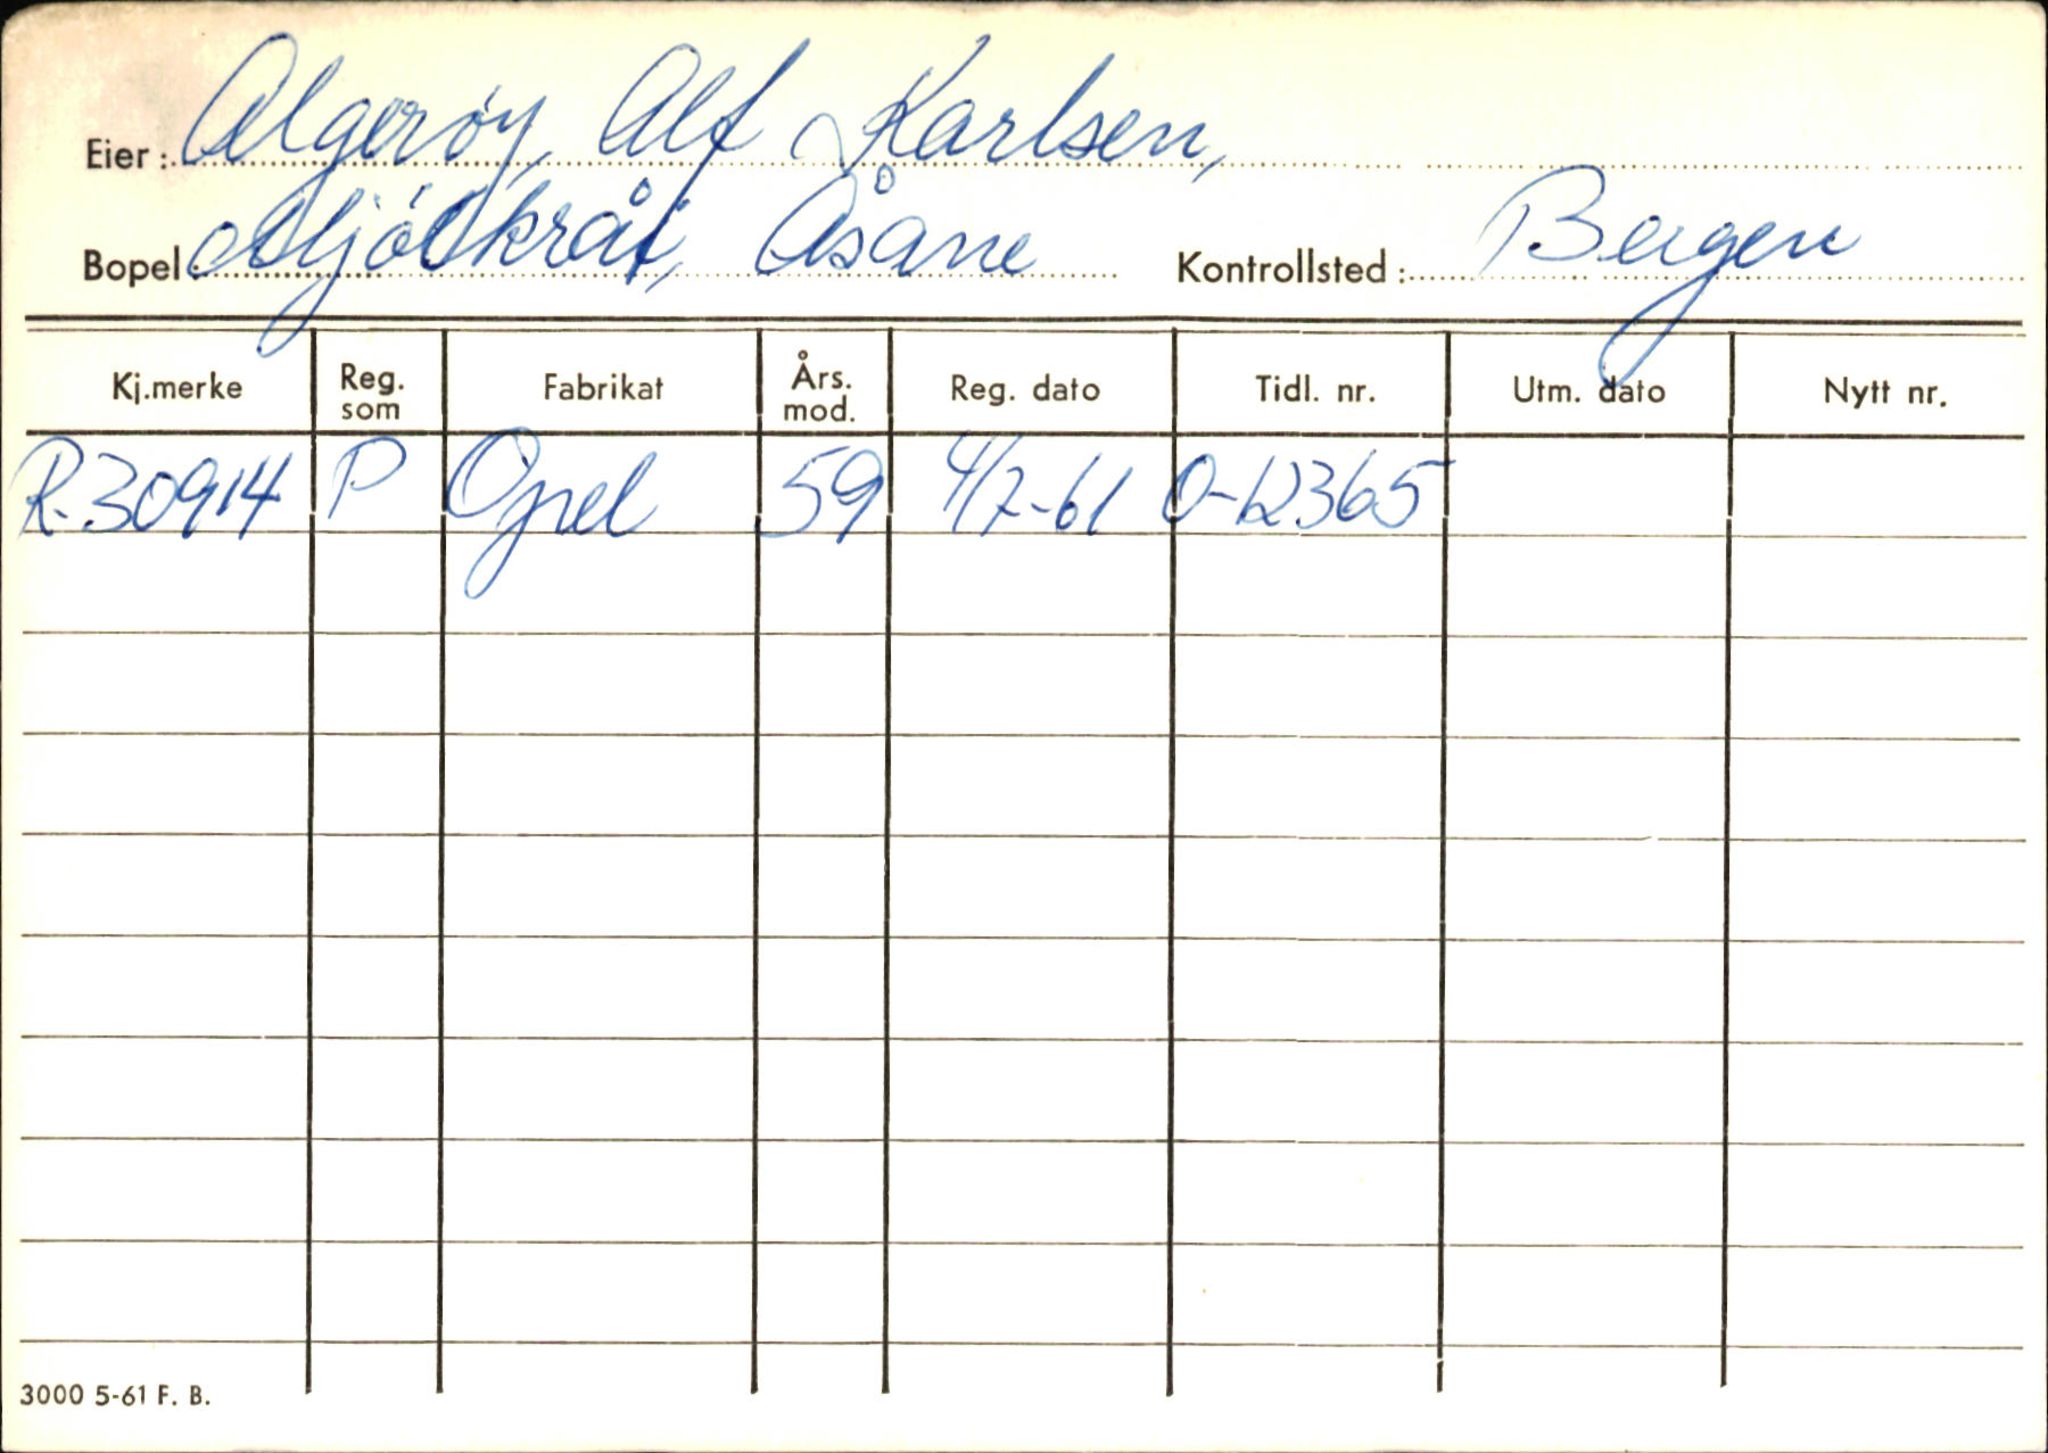 Eier: Algerøy, Alf Karlsen,
Bopel: Mjölkråt, Åsane Kontrollsted: Bergen
Kj.merke Reg. som Fabrikat Års. mod. Reg. dato Tidl. nr. Utm. dato Nytt nr.
R-30914 P Opel 59 4/7-61 O-12365
3000 5-61 F. B.